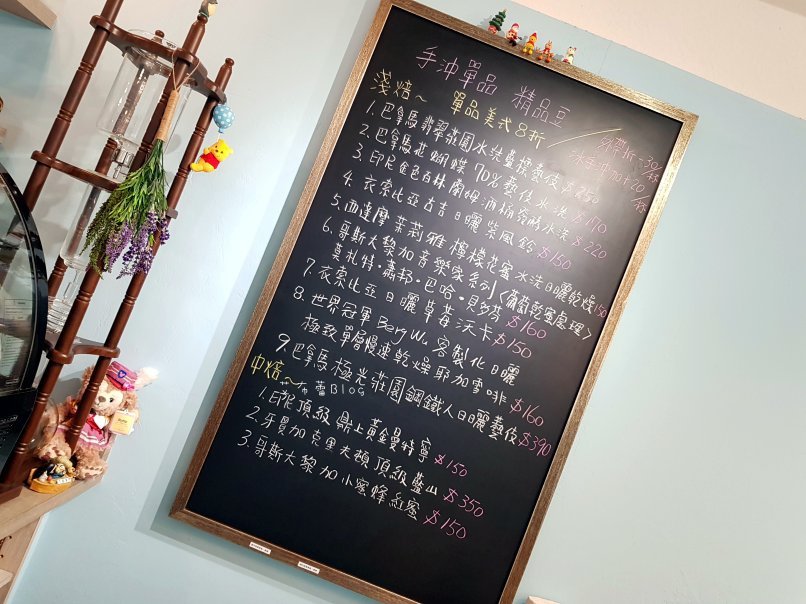 手沖單品 精品豆
淺焙~ 單品美式8折
外帶折-30元
冰手沖加+20元
1.巴拿馬翡翠莊園水洗藍標藝伎 $250
2.巴拿馬花蝴蝶70%藝伎水洗 $170
3.印尼金色百林蘭姆酒桶發酵水洗 $220
4.衣索比亞古吉日曬紫風鈴 $160
5.西達摩茉莉雅檸檬花蜜水洗日曬乾燥150
6.哥斯大黎加音樂家系列〈葡萄乾蜜處理〉
莫札特·蕭邦·巴哈·貝多芬 $160
7.衣索比亞日曬草莓沃卡 $150
8.世界冠軍 Berg W. 客製化日曬
極致單層慢速乾燥耶加雪啡 $160
9.巴拿馬極光莊園鋼鐵人日曬藝伎 $390
中焙~
蕾BLOG
1.印尼頂級鼎上黃金曼特寧 $150
2.牙買加克里夫頓頂級藍山 $350
3.哥斯大黎加小蜜蜂紅蜜 $150